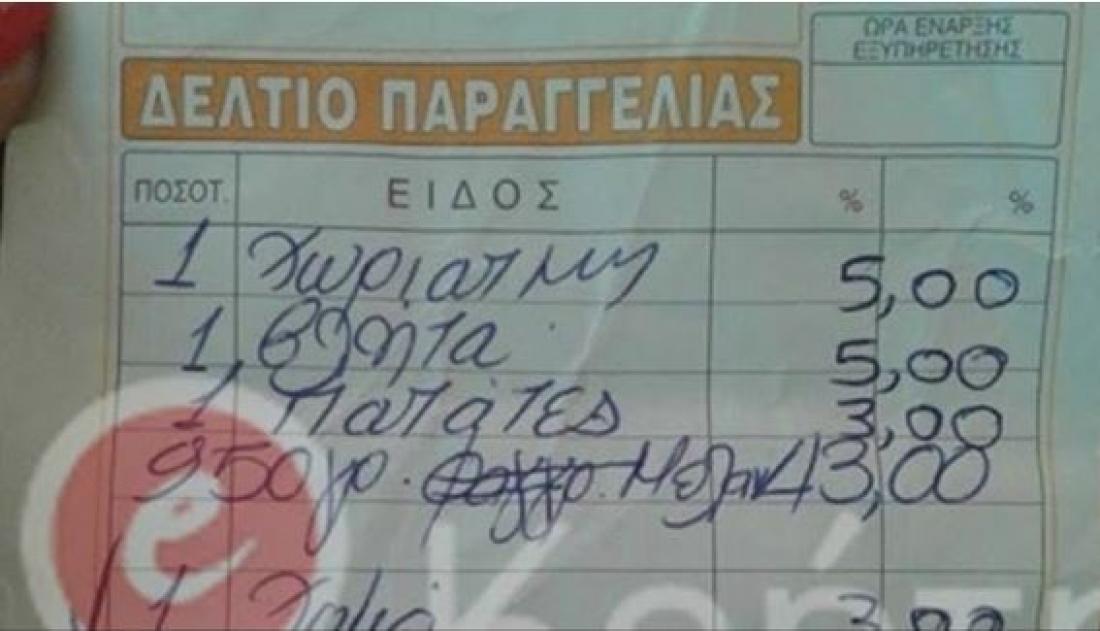 ΩΡΑ ΕΝΑΡΞΗΣ
ΕΞΥΠΗΡΕΤΗΣΗΣ
ΔΕΛΤΙΟ ΠΑΡΑΓΓΕΛΙΑΣ
ΠΟΣΟΤ. ΕΙΔΟΣ % %
1 Χωριατικη 5,00
1 βλητα 5,00
1 Πατάτες 3,00
950γρ. Μελαν 43,00
e
1 3,00